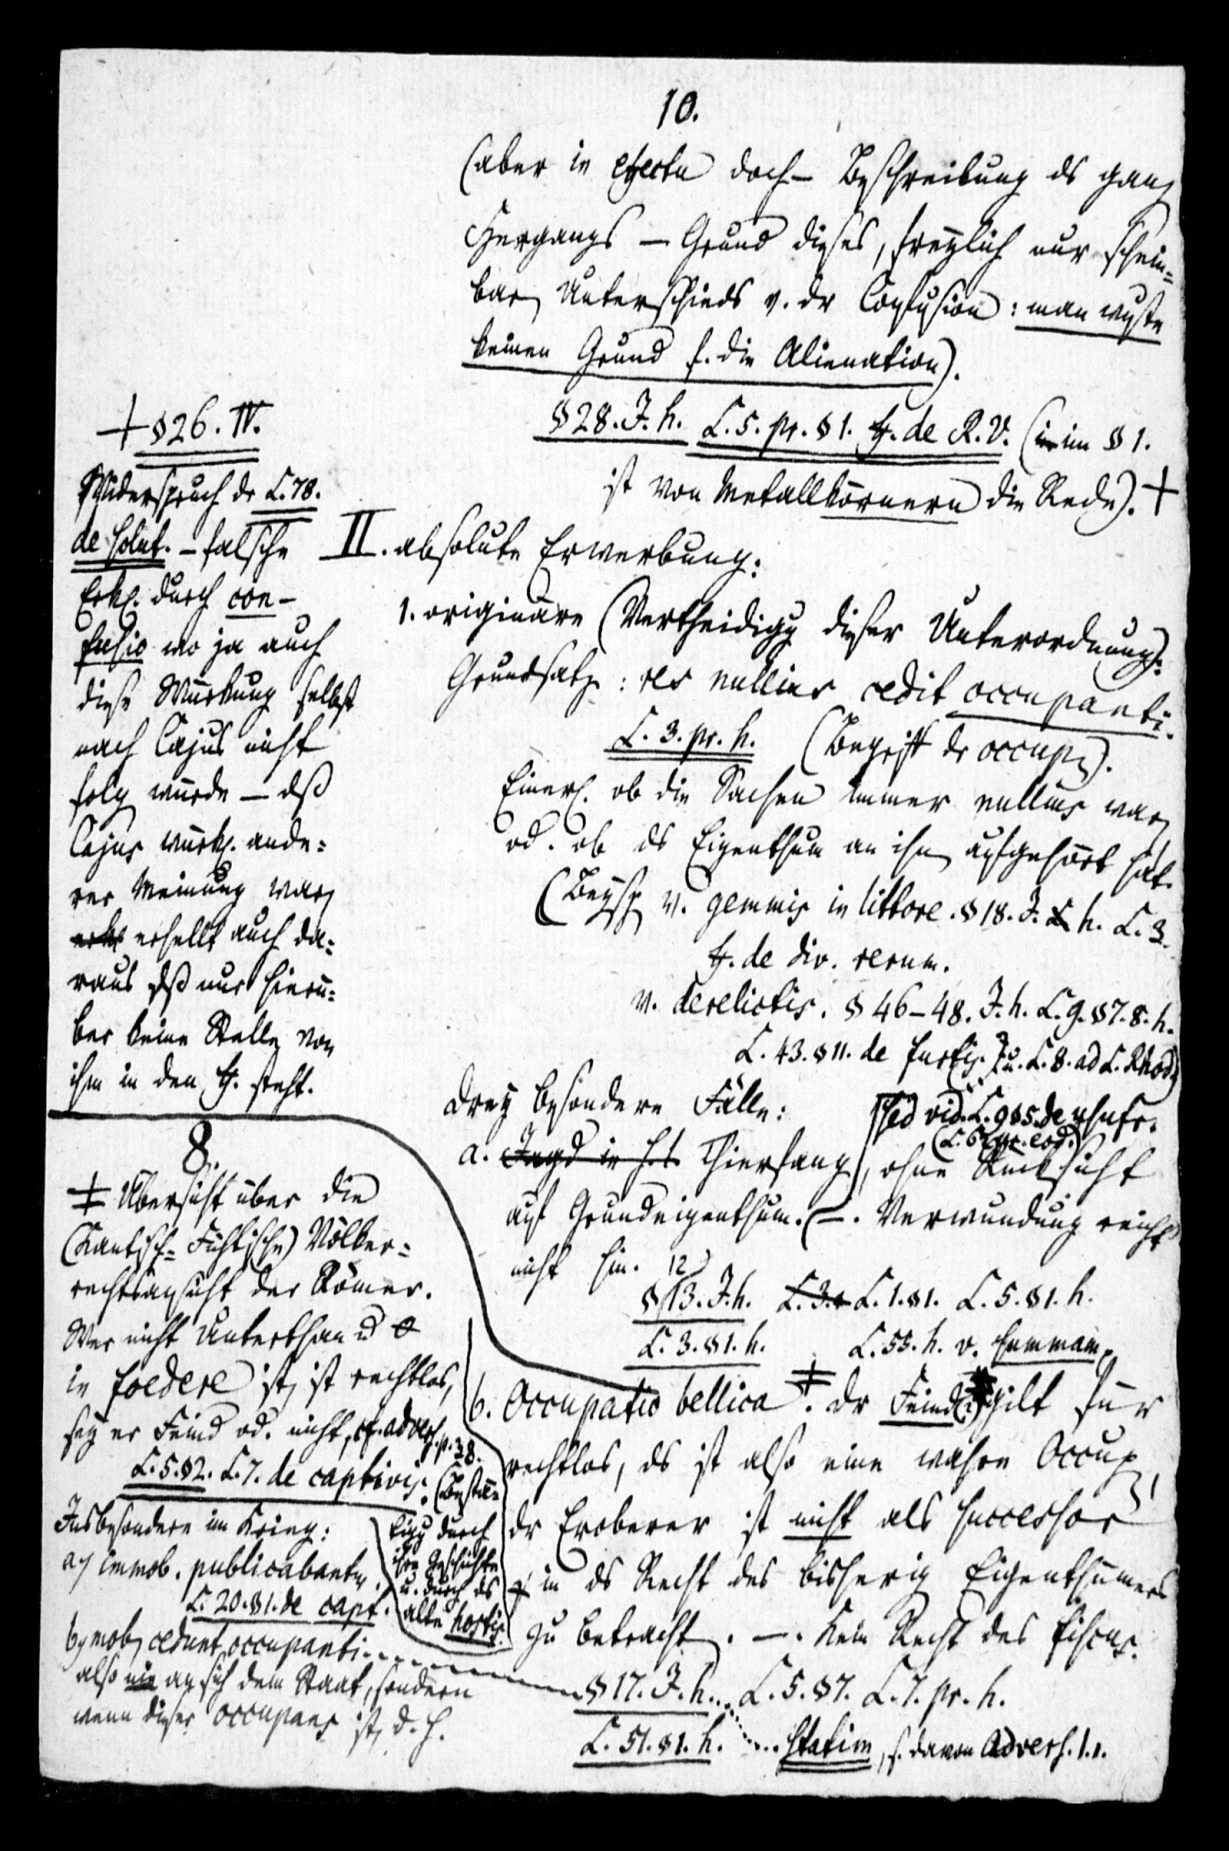 10.
(aber in effectu doch – Beschreibung ds ganz
Hergangs – Grund dieses, freylich nur schein-
bar Unterschieds v. dr Confusion: man wuste
keinen Grund f. die Alienation).
§ 28. J. h. L. 5. pr. § 1. ff. de R. V. (im § 1.
ist von Metallkörnern die Rede). +
II. absolute Erwerbung:
1. originäre (Vertheidigg dieser Unterordnung):
Grundsatz: res nullius cedit occupanti.
L. 3. pr. h. (Begriff dr occup).
Einerl. ob die Sachen immer nullius war
od. ob ds Eigenthum an ihn aufgehört hat.
(Beysp v. gemmis in littore. § 18. J. h. L. 3.
ff. de div. rerum.
v. derelictis. § 46–48. J. h. L. 9. § 7. 8. h.
L. 43. § 11. de furtis. L. 8. ad L. Rhod.
sed vid. L. 9 § 5. de usufr.
drey besondere Fälle:
a. Jagd Thierfang, ohne Rücksicht
auf Grundeigenthum. –. Verwundung reicht
nicht hin.
12
§ 13. J. h. L. 3. L. 1. § 1. L. 5. § 1. h.
L. 3. § 1. h. L. 55. h. v. summam
b. Occupatio bellica ‡. dr Feind gilt für
rechtlos, ds ist also eine wahre Occup
dr Eroberer ist nicht als successor
in ds Recht des bisherig Eigenthümers
zu betracht. –. Kein Recht des fiscus.
§ 17. J. h. L. 5. § 7. L. 7. pr. h.
L. 51. § 1. h. .... statim, s. davon Advers. 1.
+ § 26. IV.
Widerspruch dr L. 78.
de solut. – falsche
Erkl. durch con-
fusio wo ja auch
diese Würkung selbst
nach Cajus nicht
folg würde – dß
Cajus würkl. ande-
rer Meinung war
erhellt auch da-
raus dß nur hierü-
ber keine Stelle von
ihm in den ff. steht.
8.
‡ Übersicht über die
(Kantisch-Fichtische) Völker-
rechtsansicht der Römer.
Wer nicht Unterthan
in foedere ist, ist rechtlos,
sey er Feind od. nicht, cf. advers.
p. 38.
L. 5. § 2. L. 7. de captivis. (Bestä-
tigg durch
ihre Geschichte
u. durch ds
alte hostis.
Insbesondere im Krieg:
a) immob. publicabantur
L. 20. § 1. de capt.
b) mob. cedunt occupanti
also nie an sich dem Staat, sondern
wenn dieser occupans ist, d. h.